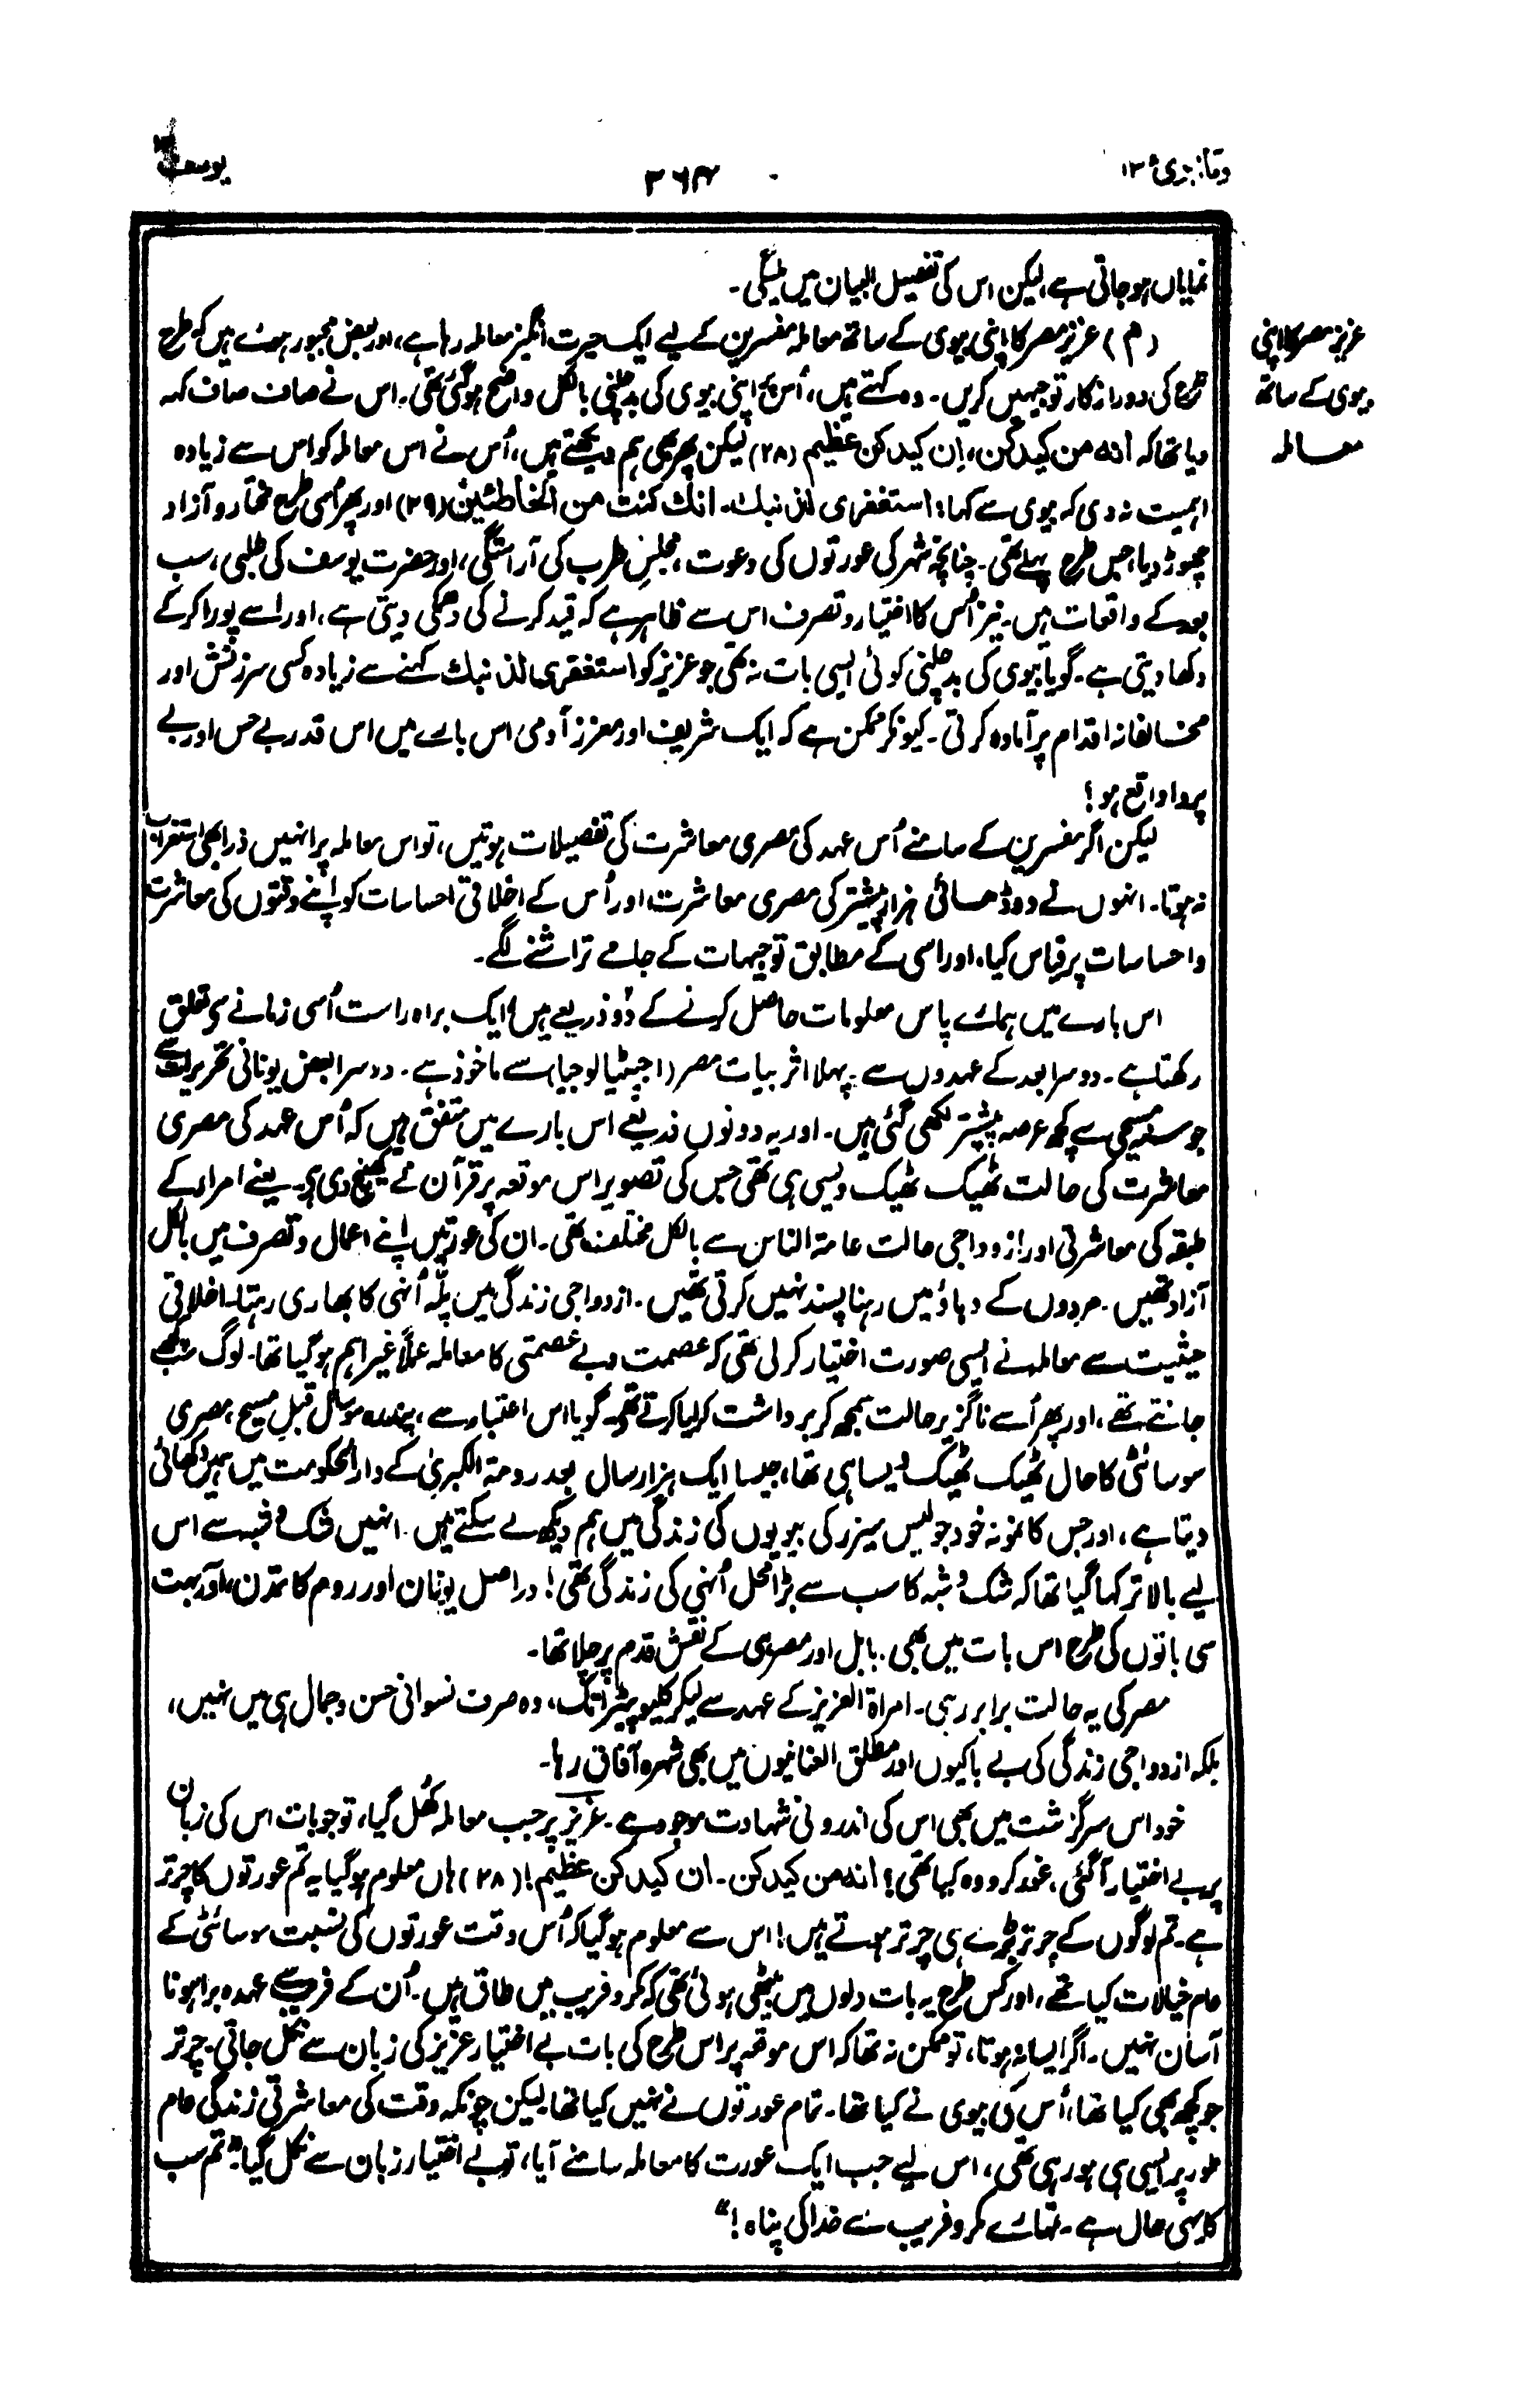 وما ابری ۱۳
۲۶۴
یوسف
نمایاں ہوجاتی ہے، لیکن اس کی تفصیل البیان میں ملیگی۔
عزیز مصر کا اپنی
بیوی کے ساتھ
معاملہ
(م) عزیز مصر کا اپنی بیوی کے ساتھ معاملہ مفسرین کے لیے ایک حیرت انگیز معاملہ رہا ہے، اور بعض مجبور ہوئے ہیں کہ طرح
طرح کی دورازکار توجیہیں کریں۔ وہ کہتے ہیں، اُس پر اپنی بیوی کی بدچلنی بالکل واضح ہوگئی تھی۔ اس نے صاف صاف کہہ
دیا تھا کہ انہ من کیدکن، اِن کیدکن عظیم (۲۸) لیکن پھر بھی ہم دیکھتے ہیں، اُس نے اس معاملہ کو اس سے زیادہ
اہمیت نہ دی کہ بیوی سے کہا: استغفری لذنبك۔ انك کنت من الخاطئین (۲۹) اور پھر اُسی طرح مختار و آزاد
چھوڑ دیا، جس طرح پہلے تھی۔ چنانچہ شہر کی عورتوں کی دعوت، مجلسِ طرب کی آراستگی، اور حضرت یوسف کی طلبی، سب
بعد کے واقعات ہیں۔ نیز اُس کا اختیار و تصرف اس سے ظاہر ہے کہ قید کرنے کی دھمکی دیتی ہے، اور اسے پورا کرکے
دکھا دیتی ہے۔ گویا بیوی کی بدچلنی کوئی ایسی بات نہ تھی جو عزیز کو استغفری لذنبك کہنے سے زیادہ کسی سرزنش اور
مخالفانہ اقدام پر آمادہ کرتی۔ کیونکر ممکن ہے کہ ایک شریف اور معزز آدمی اس بارے میں اس قدر بے حس اور بے
پروا واقع ہو؟
لیکن اگر مفسرین کے سامنے اُس عہد کی مصری معاشرت کی تفصیلات ہوتیں، تو اس معاملہ پر انہیں ذرا بھی استغراب
نہ ہوتا۔ انہوں نے دو ڈھائی ہزار پیشتر کی مصری معاشرت اور اُس کے اخلاقی احساسات کو اپنے وقتوں کی معاشرت
و احساسات پر قیاس کیا، اور اسی کے مطابق توجیہات کے جامے تراشنے لگے۔
اس بارے میں ہمارے پاس معلومات حاصل کرنے کے دو ذریعے ہیں: ایک براہ راست اُسی زمانے سے تعلق
رکھتا ہے۔ دوسرا بعد کے عہدوں سے۔ پہلا اثریات مصر (اجپٹیالوجیا) سے ماخوذ ہے۔ دوسرا بعض یونانی تحریرات سے
جو سنہ مسیحی سے کچھ عرصہ پیشتر لکھی گئی ہیں۔ اور یہ دونوں ذریعے اس بارے میں متفق ہیں کہ اُس عہد کی مصری
معاشرت کی حالت ٹھیک ٹھیک ویسی ہی تھی جس کی تصویر اس موقعہ پر قرآن نے کھینچ دی ہے۔ یعنے امراء کے
طبقہ کی معاشرتی اور ازدواجی حالت عامۃ الناس سے بالکل مختلف تھی۔ ان کی عورتیں اپنے اعمال و تصرف میں بالکل
آزاد تھیں۔ مردوں کے دباؤ میں رہنا پسند نہیں کرتی تھیں۔ ازدواجی زندگی میں پلّہ اُنہی کا بھاری رہتا۔ اخلاقی
حیثیت سے معاملہ نے ایسی صورت اختیار کرلی تھی کہ عصمت و بے عصمتی کا معاملہ عملاً غیر اہم ہوگیا تھا۔ لوگ سب کچھ
جانتے تھے، اور پھر اُسے ناگزیر حالت سمجھ کر برداشت کرلیا کرتے تھے۔ گویا اس اعتبار سے، پندرہ سو سال قبل مسیح، مصری
سوسائٹی کا حال ٹھیک ٹھیک ویسا ہی تھا، جیسا ایک ہزار سال بعد رومۃ الکبریٰ کے دارالحکومت میں ہمیں دکھائی
دیتا ہے، اور جس کا نمونہ خود جولیس سیزر کی بیویوں کی زندگی میں ہم دیکھ لے سکتے ہیں۔ انہیں شک و شبہ سے اس
لیے بالاتر کہا گیا تھا کہ شک و شبہ کا سب سے بڑا محل اُنہی کی زندگی تھی! دراصل یونان اور روم کا تمدن، اور بہت
سی باتوں کی طرح اس بات میں بھی۔ بابل اور مصر ہی کے نقش قدم پر چلا تھا۔
مصر کی یہ حالت برابر رہی۔ امراۃ العزیز کے عہد سے لیکر کلیوپیٹرا تک، وہ صرف نسوانی حسن و جمال ہی میں نہیں،
بلکہ ازدواجی زندگی کی بے باکیوں اور مطلق العنانیوں میں بھی شہرہ آفاق رہا۔
خود اس سرگزشت میں بھی اس کی اندرونی شہادت موجود ہے۔ عزیز پر جب معاملہ کُھل گیا، تو جو بات اس کی زبان
پر بے اختیار آگئی، غور کرو وہ کیا تھی؟ انہ من کیدکن۔ ان کیدکن عظیم! (۲۸) ہاں معلوم ہوگیا یہ تم عورتوں کا چرتر
ہے۔ تم لوگوں کے چرتر بڑے ہی چرتر ہوتے ہیں! اس سے معلوم ہوگیا کہ اُس وقت عورتوں کی نسبت سوسائٹی کے
عام خیالات کیا تھے، اور کس طرح یہ بات دلوں میں بیٹھی ہوئی تھی کہ مکر و فریب میں طاق ہیں۔ اُن کے فریب سے عہدہ برا ہونا
آسان نہیں۔ اگر ایسا نہ ہوتا، تو ممکن نہ تھا کہ اس موقعہ پر اس طرح کی بات بے اختیار عزیز کی زبان سے نکل جاتی۔ چرتر
جو کچھ بھی کیا تھا، اُس کی بیوی نے کیا تھا۔ تمام عورتوں نے نہیں کیا تھا لیکن چونکہ وقت کی معاشرتی زندگی عام
طور پر ایسی ہی ہو رہی تھی، اس لیے جب ایک عورت کا معاملہ سامنے آیا، تو بے اختیار زبان سے نکل گیا: "تم سب
کا یہی حال ہے۔ تمہارے مکر و فریب سے خدا کی پناہ!"